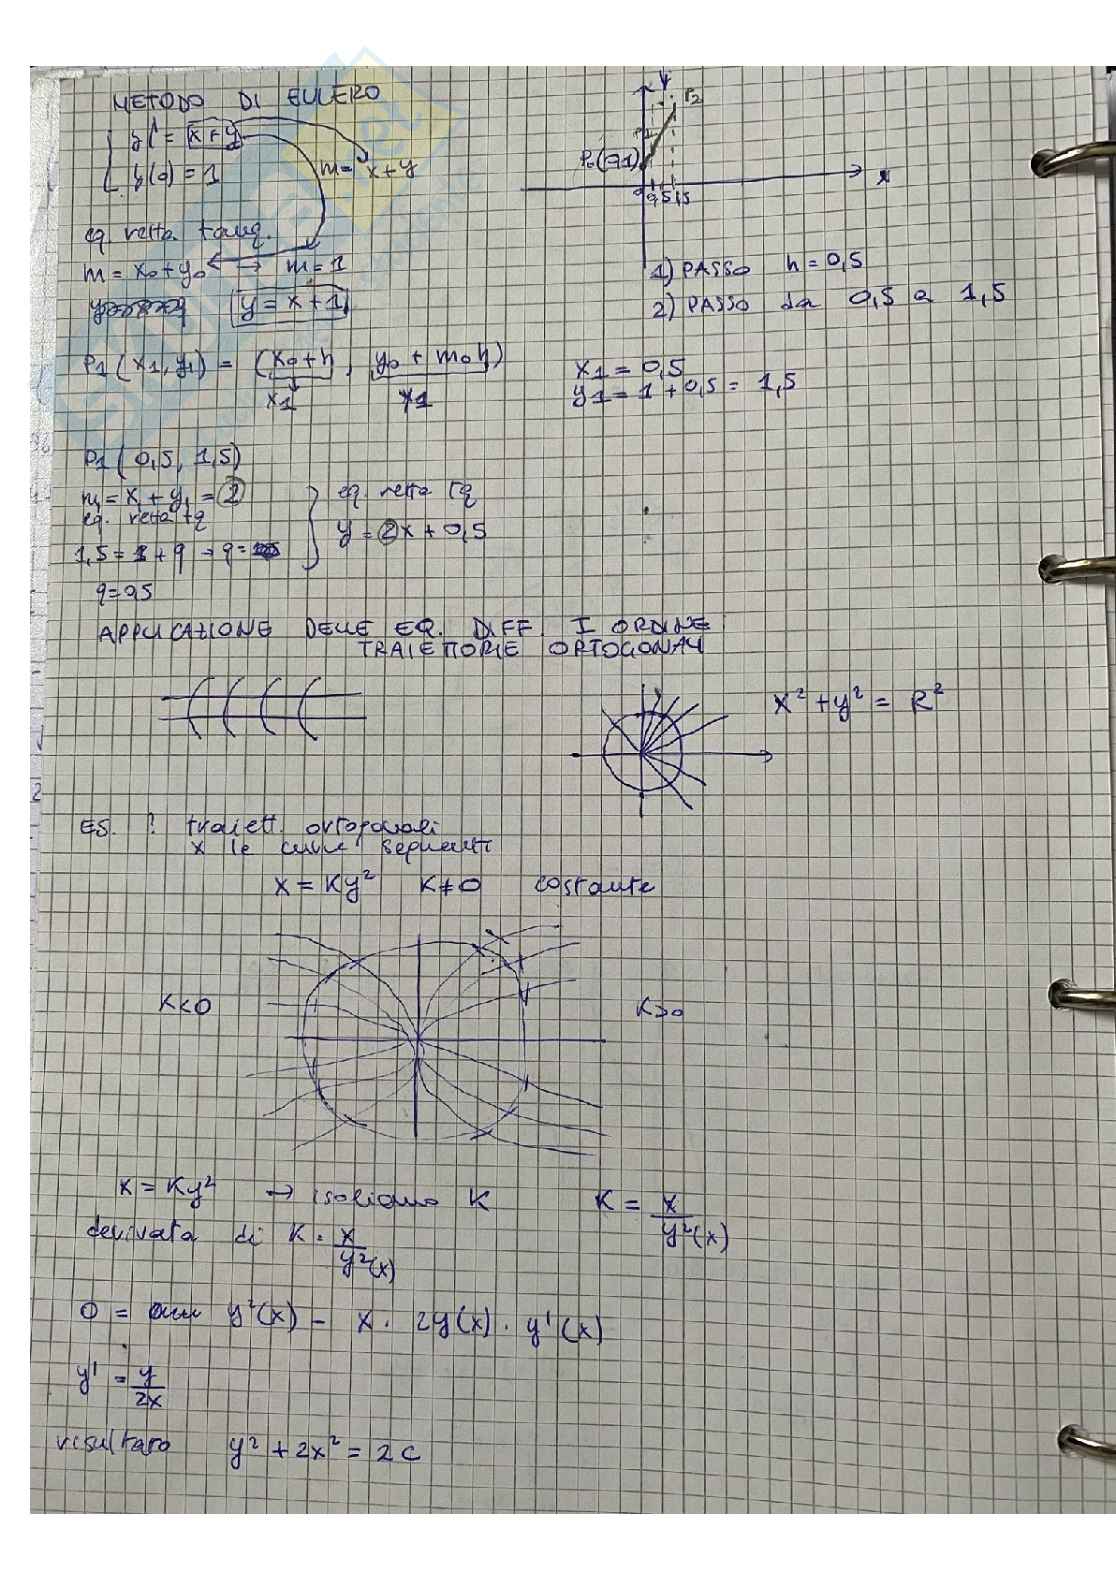 METODO DI EULERO
y' = x+y
y(0) = 1
m = x+y
P0(0,1)
P2
x
0,5 1,5
eq. retta tang.
m = x0 + y0 → m = 1
y = x+1
1) PASSO h = 0,5
2) PASSO da 0,5 a 1,5
P1 (x1, y1) = (x0+h, y0 + m0h)
x1
y1
x1 = 0,5
y1 = 1 + 0,5 = 1,5
P1 (0,5, 1,5)
m1 = x1 + y1 = 2
eq. retta tg
1,5 = 1 + q → q =
q = 0,5
eq. retta tg
y = 2x + 0,5
APPLICAZIONE DELLE EQ. DIFF I ORDINE
TRAIETTORIE ORTOGONALI
x² + y² = R²
ES. ? traiett. ortogonali
x le curve seguenti
x = Ky² K≠0 costante
K<0
K>0
x = Ky² → isoliamo K
K = x/y²(x)
derivata di K = x/y²(x)
0 = y²(x) - x · 2y(x) · y'(x)
y' = y/2x
risultato y² + 2x² = 2C